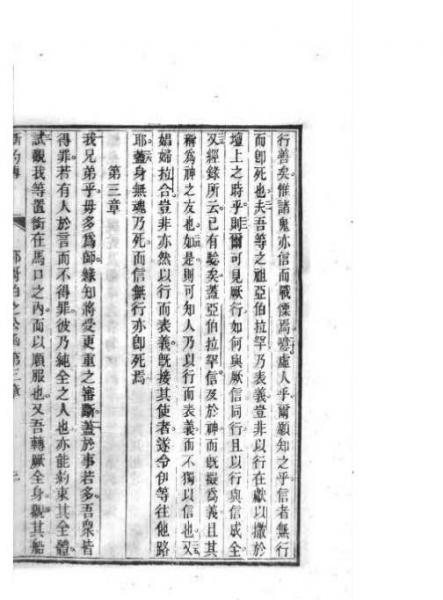 行善矣惟諸鬼亦信而戰慄焉噫虛人乎爾願知之乎信者無行
而卽死也夫吾等之祖亞伯拉罕乃表義豈非以行在獻以撒於
壇上之時乎則爾可見厥行如何與厥信同行且以行與信成全
又經錄所云已有驗矣蓋亞伯拉罕信及於神而旣擬爲義且其
稱爲神之友也如是則可知人乃以行而表義而不獨以信也又
娼婦拉合豈非亦然以行而表義旣接其使者遂令伊等往他路
耶蓋身無魂乃死而信無行亦卽死焉
第三章
我兄弟乎毋多爲師緣知將受更重之審斷蓋於事若多吾衆皆
得罪若有人於言而不得罪彼乃純全之人也亦能約束其全體
試觀我等置銜在馬口之內而以順服也又吾轉厥全身觀其船
之公函第三章